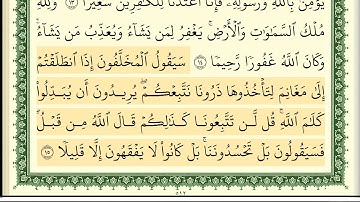 يُؤْمِنۢ بِٱللَّهِ وَرَسُولِهِۦ فَإِنَّآ أَعْتَدْنَا لِلْكَٰفِرِينَ سَعِيرًا ١٣ وَلِلَّهِ
مُلْكُ ٱلسَّمَٰوَٰتِ وَٱلْأَرْضِۚ يَغْفِرُ لِمَن يَشَآءُ وَيُعَذِّبُ مَن يَشَآءُۚ
وَكَانَ ٱللَّهُ غَفُورًا رَّحِيمًا ١٤ سَيَقُولُ ٱلْمُخَلَّفُونَ إِذَا ٱنطَلَقْتُمْ
إِلَىٰ مَغَانِمَ لِتَأْخُذُوهَا ذَرُونَا نَتَّبِعْكُمْۖ يُرِيدُونَ أَن يُبَدِّلُوا۟
كَلَٰمَ ٱللَّهِۚ قُل لَّن تَتَّبِعُونَا كَذَٰلِكُمْ قَالَ ٱللَّهُ مِن قَبْلُۖ
فَسَيَقُولُونَ بَلْ تَحْسُدُونَنَاۚ بَلْ كَانُوا۟ لَا يَفْقَهُونَ إِلَّا قَلِيلًا ١٥
٥١٢